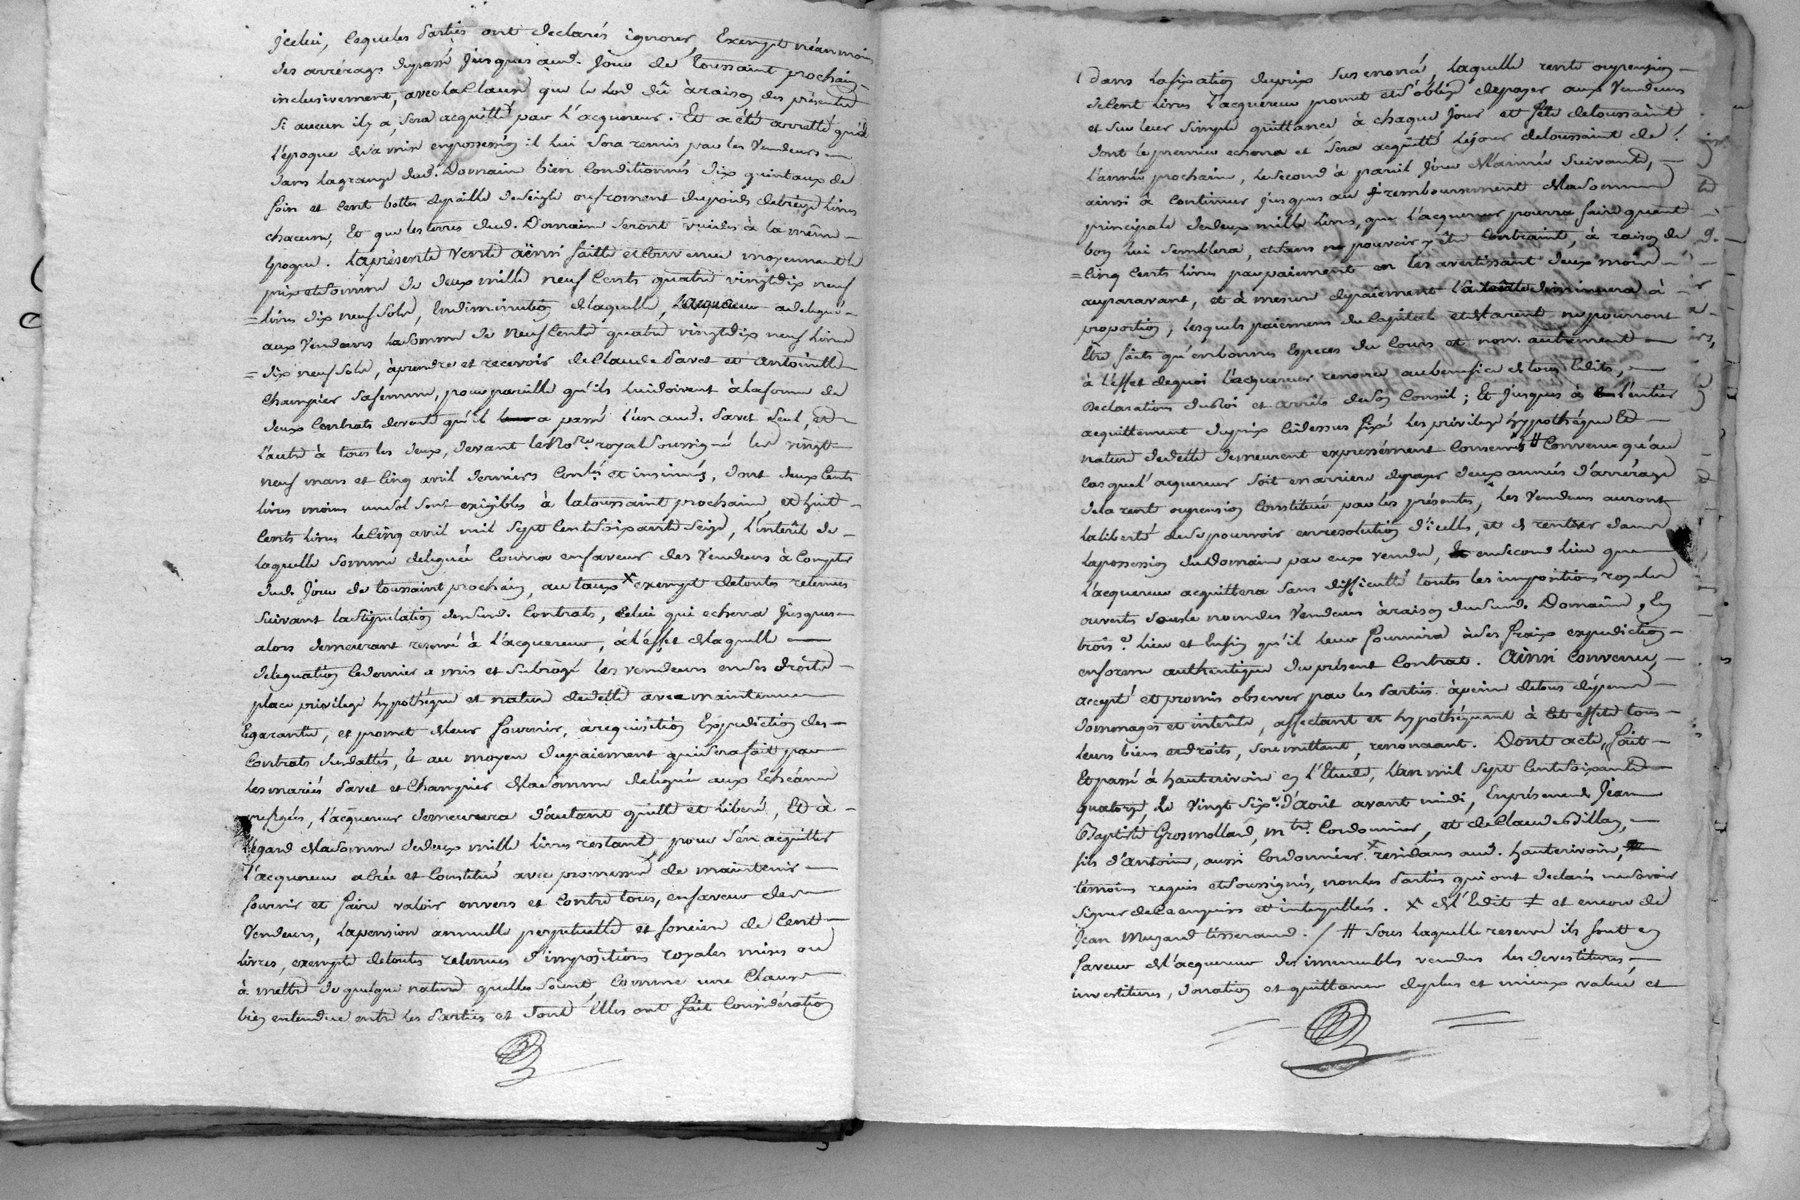 jcelui, lequelles parties ont declarés ignorer, Exempt néanmoins
des arrérages du passé jusques aud. jour de toussaint prochain
inclusivement, avec la Clause que le Lod dû à raison des présentes
Si aucun il y a, sera acquitté par l'acquereur. Et a été arretté qu'à
l'époque de sa mise en possession il lui sera remis par les Vendeurs
dans la grange dud. Domaine bien conditionnés dix quintaux de
foin et cent bottes de paille de seigle ou froment du poids de treize livres
chacune, Et que les terres dud. Domaine seront vuides à la même
Epoque. La présente vente ainsi faitte et convenue moyennant le
prix et somme de deux mille neuf cents quatre vingt dix neuf
livres dix neuf sols, En diminution de laquelle, L'acquereur a delegué
aux Vendeurs la somme de neuf cents quatre vingt dix neuf livres
dix neuf sols, à prendre et recevoir de Claude Pavet et antoinette
Champier sa femme, pour pareille qu'ils lui doivent à la forme de
deux Contrats de vente qu'il a passé l'un aud. Pavet seul, et
l'autre à tous les deux, devant le No.re royal soussigné les vingt
neuf mars et cinq avril derniers Conllés et insinués, dont deux cents
livres moins un sol sont exigibles à la toussaint prochaine, et huit
cents livres le cinq avril mil sept cent soixante seize, l'interêt de
laquelle somme deleguée courra en faveur des Vendeurs à Compter
dud. jour de toussaint prochain, au taux X exempt de toutes retenues
suivant la stipulation desud. Contrats, celui qui echerra jusques
alors demeurant reservé à l'acquereur, à l'effet de laquelle
delegation ce dernier a mis et subrogé les vendeurs en ses droits
place privilege hypothéque et nature de dette avec maintenue
Egarantie, et promet de leur fournir, à requisition Expedition des
Contrats susdattés, & au moyen du paiement qui sera fait par
les mariés Pavet et Champier de la somme deleguée aux Echéances
prefigées, l'acquereur demeurera d'autant quitte et liberé, Et à
l'égard de la somme de deux mille livres restante, pour s'en acquitter
l'acquereur a créé et Constitué avec promesse de maintenir
fournir et faire valoir envers et contre tous, en faveur des
Vendeurs, la pension annuelle perpetuelle et fonciere de Cent
Livres, exempte de toutes retenues d'impositions royales mises ou
à mettre de quelque nature quelles soient Comme une Clause
bien entendue entre les Parties et dont Elles ont fait Considération
dans la fixation du prix sus enoncé laquelle rente ou pension
de Cent livres l'acquereur promet et s'oblige de payer aux Vendeurs
et sur leur simple quittance à chaque jour et fête de toussaint
dont le premier echerra et sera acquitté le jour de toussaint de
l'année prochaine, le second à pareil jour de l'année suivante,
ainsi à continuer jusques au remboursement de la somme
principale de deux mille livres, que l'acquereur pourra faire quant
bon lui semblera, et sans ne pouvoir y être Contraint, à raison de
cinq cents livres par paiement en les avertissant deux mois
auparavant, et à mesure de paiement la rente diminuera à
proportion, lesquels paiemens du Capital et de la rente ne pourront
Etre faits qu'en bonnes Especes du Cours et non autrement
à l'effet de quoi l'acquereur renonce au benefice de tous Edits,
Declarations du Roi et arrêts de son Conseil; Et jusques à l'entier
acquittement du prix ci dessus fixé les privilege hypothéque Et
nature de dette demeurent expressément Conservés # Convenu qu'au
cas que l'acquereur soit en arriere de payer deux années d'arrérages
de la rente ou pension Constituée par les présentes, les Vendeurs auront
la liberté de se pourvoir en resolution d'icelles, et de rentrer dans
la possession du Domaine par eux vendu, en second lieu que
l'acquereur acquittera sans difficulté toutes les impositions royales
ouverts sous le nom des Vendeurs à raison du sud. Domaine, En
trois.e lieu et Enfin qu'il leur fournira à ses fraix expedition
en forme authentique du présent Contrat. Ainsi Convenu,
accepté et promis observer par les Parties à peine de tous dépens
dommages et interêts, affectant et hypothéquant à cet effet tous
leurs biens et droits, soumettant, renonçant. Dont acte, fait
Et passé à hauterivoire en l'Etude, l'an mil sept Cent soixante
quatorze, le vingt six.e d'août avant midi, En présence de Jean
Baptiste Grosmolland, m.tre Cordonnier, et de Claude Billoy,
fils d'antoine, aussi Cordonnier X residans aud. hauterivoire,
témoins requis et soussignés, non les Parties qui ont declaré ne savoir
signer de ce enquises et interpellées. X de l'Edit ≠ et encore de
Jean Mugand tisserand. / # sous laquelle reserve ils font en
faveur de l'acquereur des immeubles vendus les devestitures
investitures, donation et quittance de plus et mieux value et